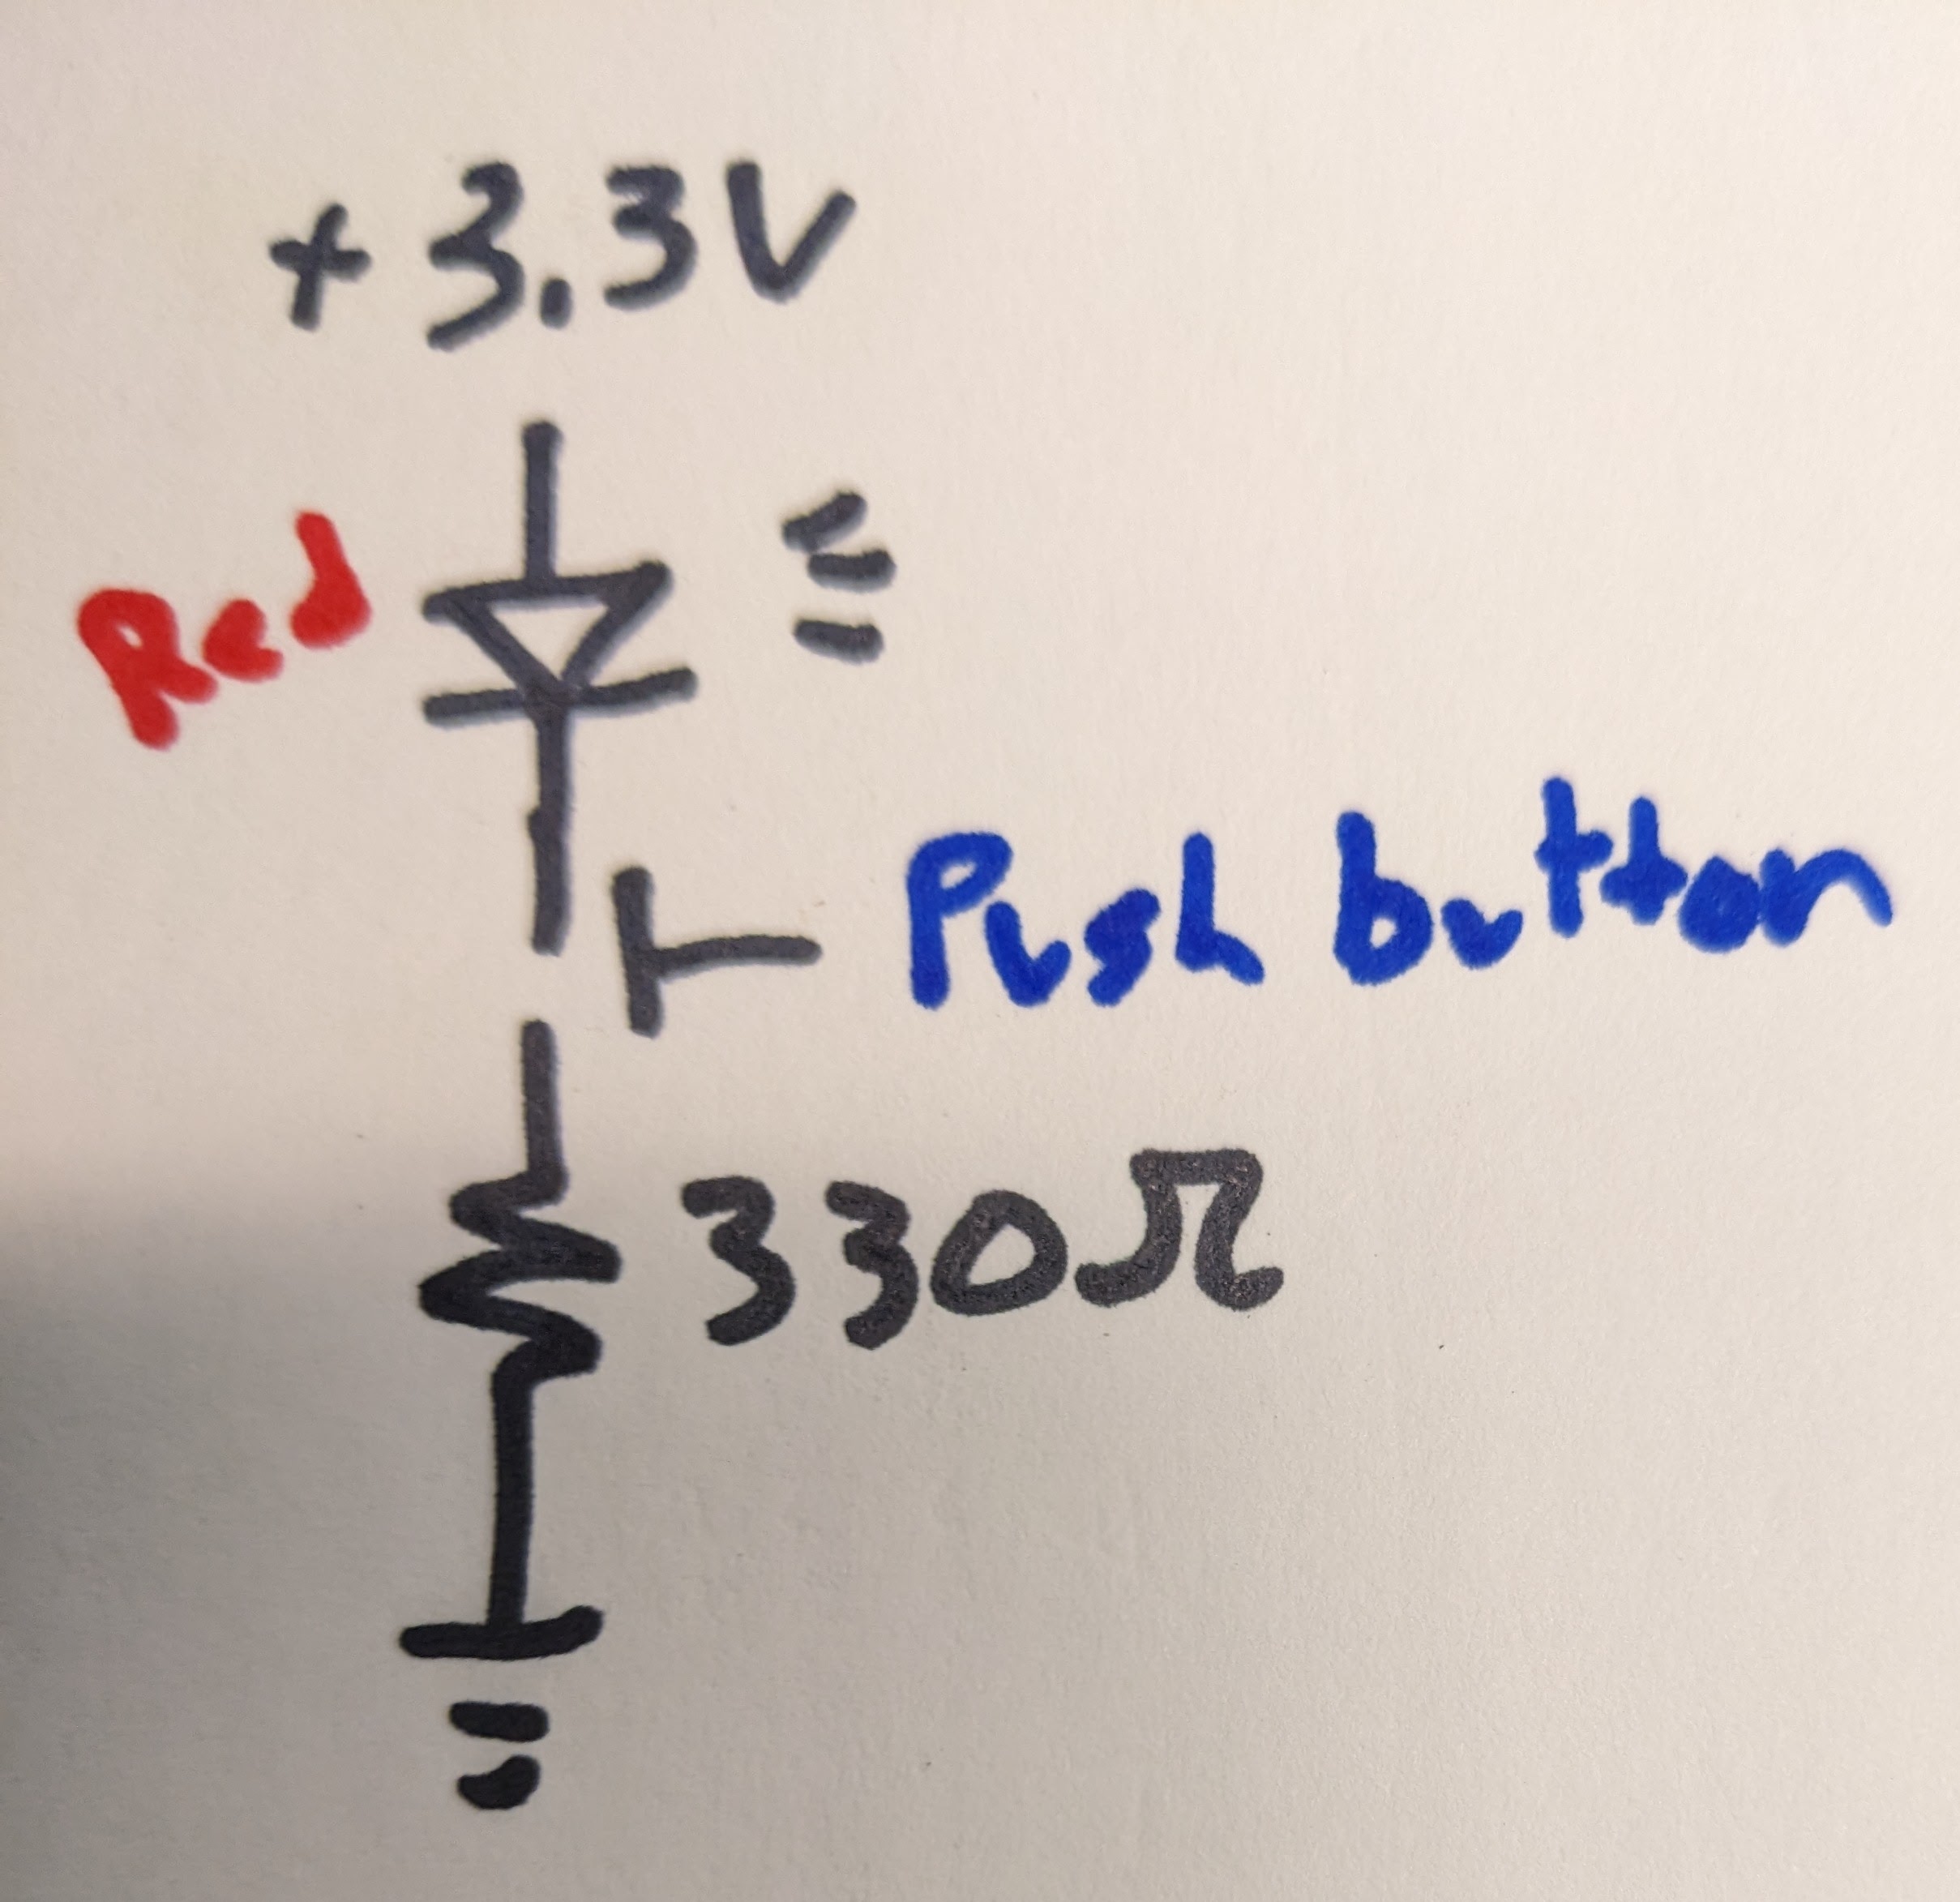 +3.3V
Red
Push button
330Ω